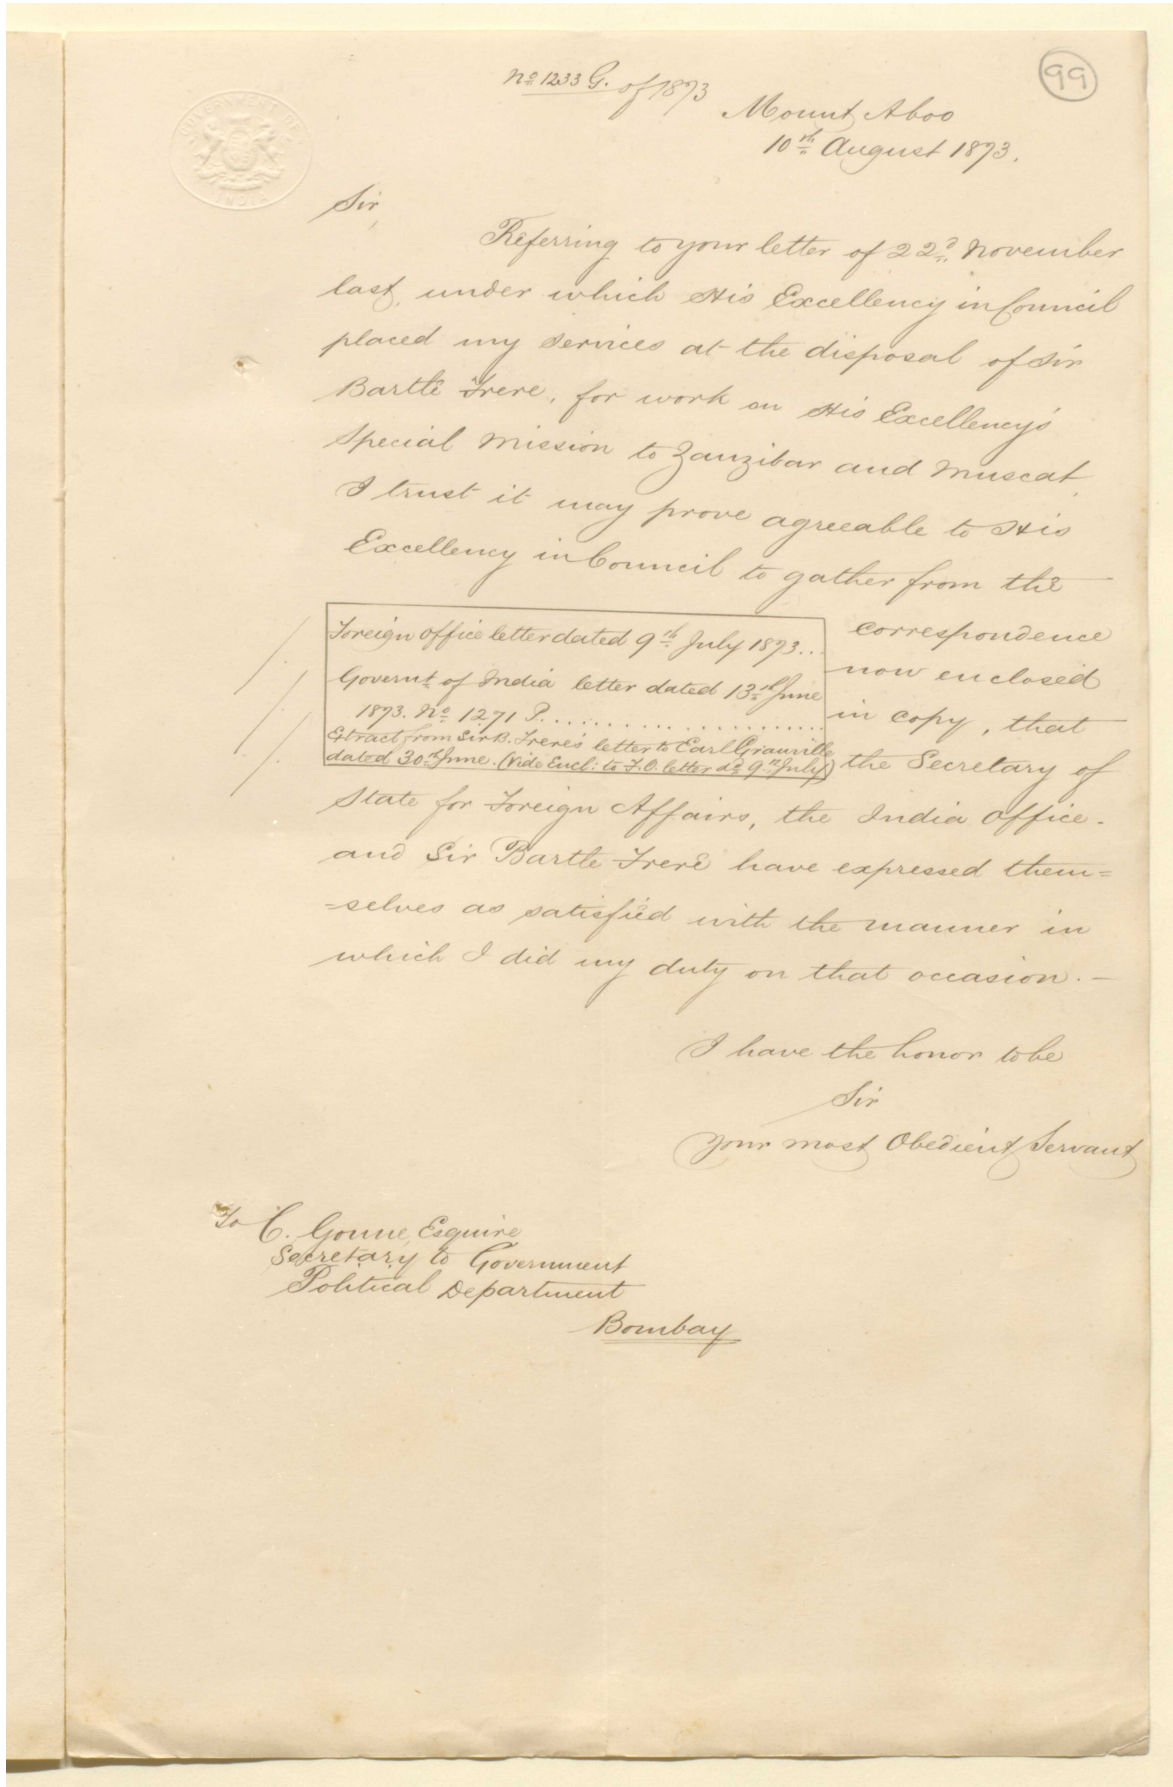 99
No 1233 G. of 1873
Mount Aboo
10th August 1873.
GOVERNMENT OF
INDIA
Sir,
Referring to your letter of 22d November
last, under which His Excellency in Council
placed my services at the disposal of Sir
Bartle Frere, for work on His Excellency's
Special Mission to Zanzibar and Muscat,
I trust it may prove agreeable to His
Excellency in Council to gather from the
Foreign Office letter dated 9th July 1873...
Governt of India letter dated 13th June
1873. No 1271 P....................
Extract from Sir B. Frere's letter to Earl Granville
dated 30th June. (Vide Encl: to F.O. letter dd 9th July)
correspondence
now enclosed
in copy, that
the Secretary of
State for Foreign Affairs, the India Office.
and Sir Bartle Frere have expressed them=
=selves as satisfied with the manner in
which I did my duty on that occasion.—
I have the honor to be
Sir
your most Obedient Servant
To C. Gonne, Esquire
Secretary to Government
Political Department
Bombay